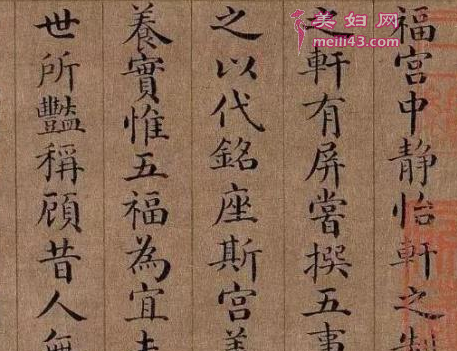 美妇网
meili43.com
福宫中静怡軒之
之軒有屏嘗撰五事
之以代銘座斯宫
養實惟五福為宜
世所豔稱顧昔人無